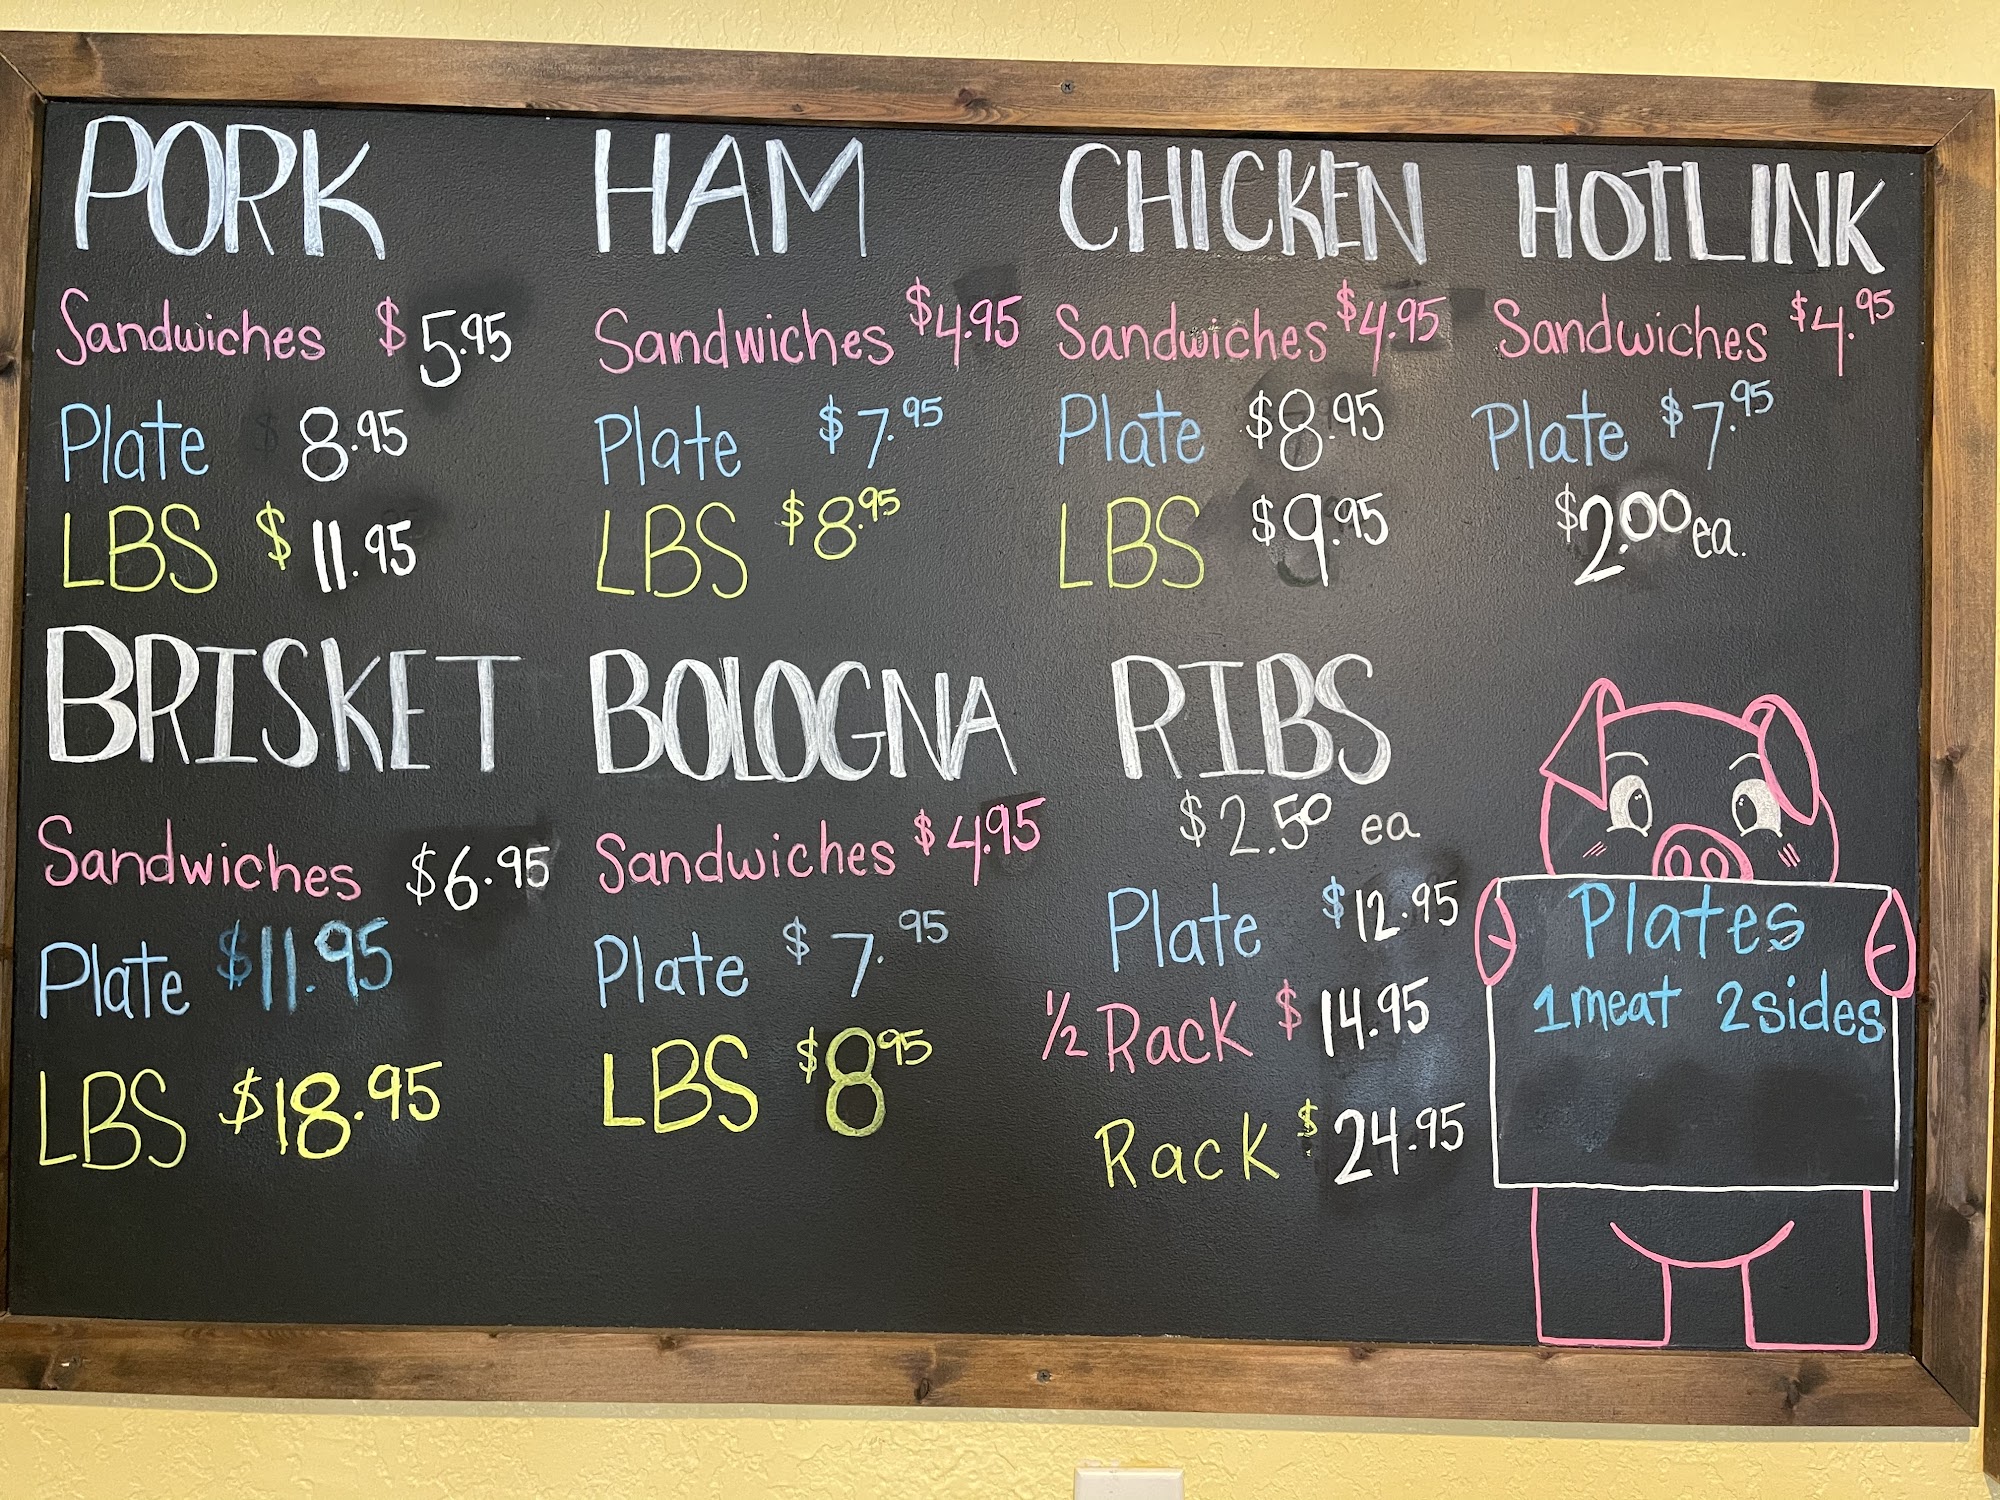 PORK
Sandwiches $5.95
Plate 8.95
LBS $11.95
HAM
Sandwiches $4.95
Plate $7.95
LBS $8.95
CHICKEN
Sandwiches $4.95
Plate $8.95
LBS $9.95
HOTLINK
Sandwiches $4.95
Plate $7.95
$2.00 ea.
BRISKET
Sandwiches $6.95
Plate $11.95
LBS $18.95
BOLOGNA
Sandwiches $4.95
Plate $7.95
LBS $8.95
RIBS
$2.50 ea
Plate $12.95
1/2 Rack $14.95
Rack $24.95
Plates
1meat 2sides